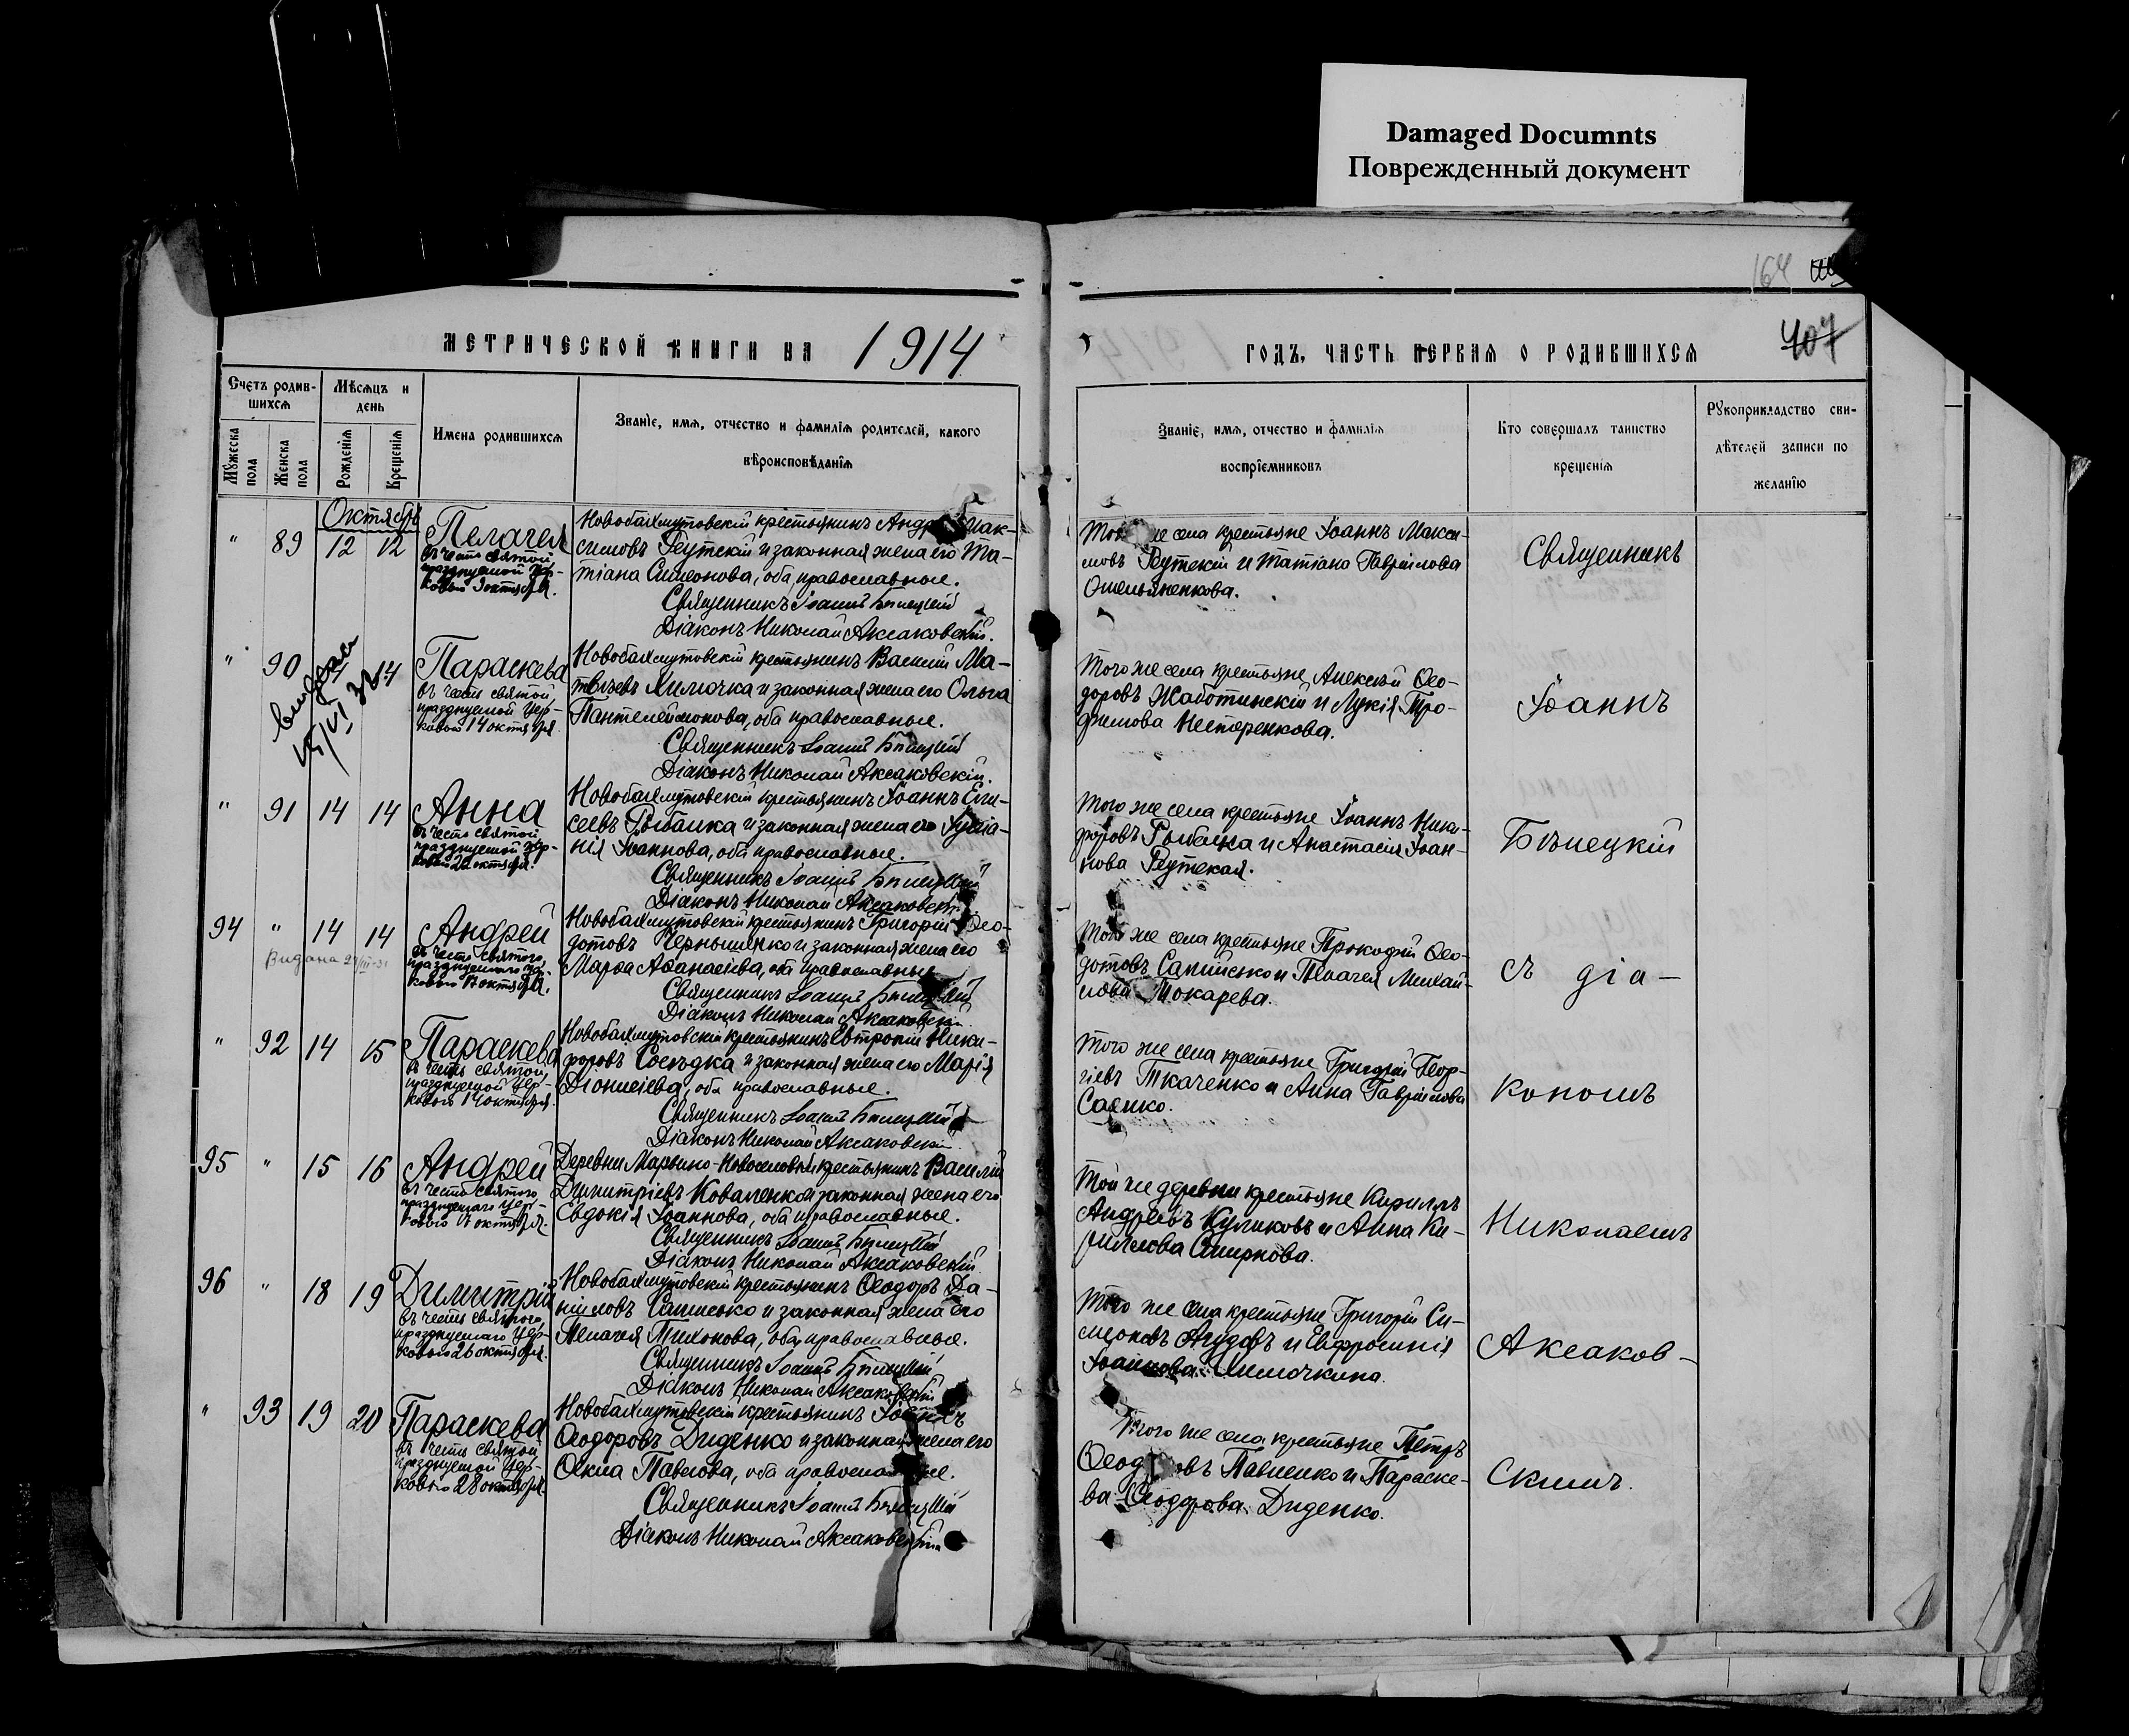 Damaged Documnts
Поврежденный документ
164
МЕТРИЧЕСКОЙ КНИГИ НА 1914
ГОДЪ, ЧАСТЬ ПЕРВАЯ О РОДИВШИХСЯ
407
Счетъ родив-
шихся
Мужеска пола
Женска пола
Мѣсяцъ и
день
Рожденія
Крещенія
Имена родившихся
Званіе, имя, отчество и фамилія родителей, какого
вѣроисповѣданія
Званіе, имя, отчество и фамилія
воспріемниковъ
Кто совершалъ таинство
крещенія
Рукоприкладство сви-
дѣтелей записи по
желанію
Октябрь
" 89 12 12
Пелагея
въ честь святой
празднуемой цер-
ковью 8 октября.
Новобахмутовскій крестьянинъ Андрей Мак-
симовъ Реутскій и законная жена его Та-
тіана Симеонова, оба православные.
Священникъ Іоаннъ Бѣлецкій
Діаконъ Николай Аксаковскій.
Того же села крестьяне Іоаннъ Макси-
мовъ Реутскій и Татіана Гавріилова
Омельяненкова.
Священникъ
" 90 14
видана
Параскева
въ честь святой
празднуемой цер-
ковью 14 октября
Новобахмутовскій крестьянинъ Василій Ма-
твѣевъ Химочка и законная жена его Ольга
Пантелеймонова, оба православные.
Священникъ Іоаннъ Бѣлецкій
Діаконъ Николай Аксаковскій.
Того же села крестьяне Алексѣй Ѳео-
доровъ Жаботинскій и Лукія Тро-
фимова Нестеренкова.
Іоаннъ
" 91 14 14
Анна
въ честь святой
празднуемой цер-
ковью 22 октября.
Новобахмутовскій крестьянинъ Іоаннъ Ели-
сеевъ Рыбалка и законная жена его Іуліа-
нія Іоаннова, оба православные.
Священникъ Іоаннъ Бѣлецкій
Діаконъ Николай Аксаковскій
Того же села крестьяне Іоаннъ Ники-
форовъ Рыбалка и Анастасія Іоан-
нова Реутская.
Бѣлецкій
94 " 14 14
Видана
Андрей
въ честь святого,
празднуемаго цер-
ковью 17 октября.
Новобахмутовскій крестьянинъ Григорій Ѳео-
дотовъ Чернышенко и законная жена его
Марѳа Аѳанасіева, оба православные
Священникъ Іоаннъ Бѣлецкій
Діаконъ Николай Аксаковскій
Того же села крестьяне Прокофій Ѳео-
дотовъ и Пелагея Михай-
лова Токарева.
съ діа-
" 92 14 15
Параскева
въ честь святой,
празднуемой цер-
ковью 14 октября.
Новобахмутовскій крестьянинъ Евтропій Ники-
форовъ Сосѣдка и законная жена его Марія
Діонисіева, оба православные.
Священникъ Іоаннъ Бѣлецкій
Діаконъ Николай Аксаковскій
Того же села крестьяне Григорій Геор-
гіевъ Ткаченко и Анна Гавріилова
Саенко.
кономъ
95 " 15 16
Андрей
въ честь святого
празднуемаго цер-
ковью 17 октября.
Деревни Марьино-Новоселовки крестьянинъ Василій
Димитріевъ Коваленко и законная жена его
Евдокія Іоаннова, оба православные.
Священникъ Іоаннъ Бѣлецкій
Діаконъ Николай Аксаковскій
Той же деревни крестьяне Кириллъ
Андреевъ Куликовъ и Анна Ки-
риллова Смирнова.
Николаемъ
96 " 18 19
Димитрій
въ честь святого,
празднуемаго цер-
ковью 26 октября.
Новобахмутовскій крестьянинъ Ѳеодоръ Да-
ніиловъ и законная жена его
Пелагея Тихонова, оба православные.
Священникъ Іоаннъ Бѣлецкій
Діаконъ Николай Аксаковскій
Того же села крестьяне Григорій Си-
меоновъ и Евфросинія
Іоаннова Химочкина.
Аксаков-
" 93 19 20
Параскева
въ честь святой
празднуемой цер-
ковью 28 октября.
Новобахмутовскій крестьянинъ Іоаннъ
Ѳеодоровъ Диденко и законная жена его
Ѳекла Павлова, оба православные.
Священникъ Іоаннъ Бѣлецкій
Діаконъ Николай Аксаковскій
Того же села крестьяне Петръ
Ѳеодоровъ Павленко и Параске-
ва Ѳеодорова Диденко.
скимъ.